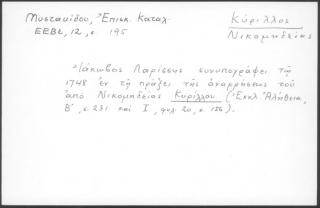 Μυστακίδου, Ἐπισκ. Καταλ.
ΕΕΒΣ, 12, σ. 195
Κύριλλος
Νικομηδείας
Ἰάκωβος Λαρίσσης συνυπογράφει τῷ
1748 ἐν τῇ πράξει τῆς ἀναρρήσεως τοῦ
ἀπὸ Νικομηδείας Κυρίλλου (Ἐκκλ. Ἀλήθεια,
Β΄, σ. 231 καὶ Ι, φυλ. 20, σ. 156).